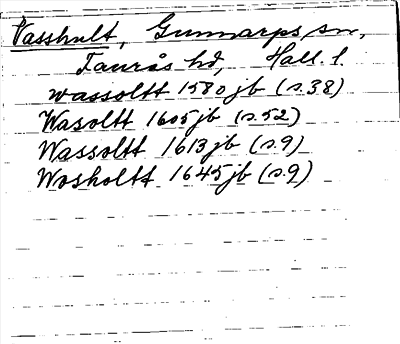 Vasshult, Gunnarps sn,
Faurås hd, Hall. l.
Wassoltt 1580 jb (s. 38)
Wasoltt 1605 jb (s. 52)
Wassoltt 1613 jb (s. 9)
Wosholtt 1645 jb (s. 9)